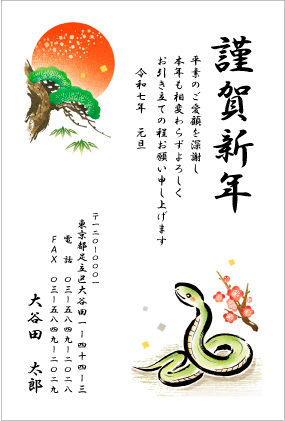 謹賀新年
平素のご愛顧を深謝し
本年も相変わらずよろしく
お引き立ての程お願い申し上げます
令和七年　元旦
〒一二〇-〇〇〇一
東京都足立区大谷田一-四十四-三
電話　〇三-五八四九-二〇二八
FAX　〇三-五八四九-二〇二九
大谷田　太郎